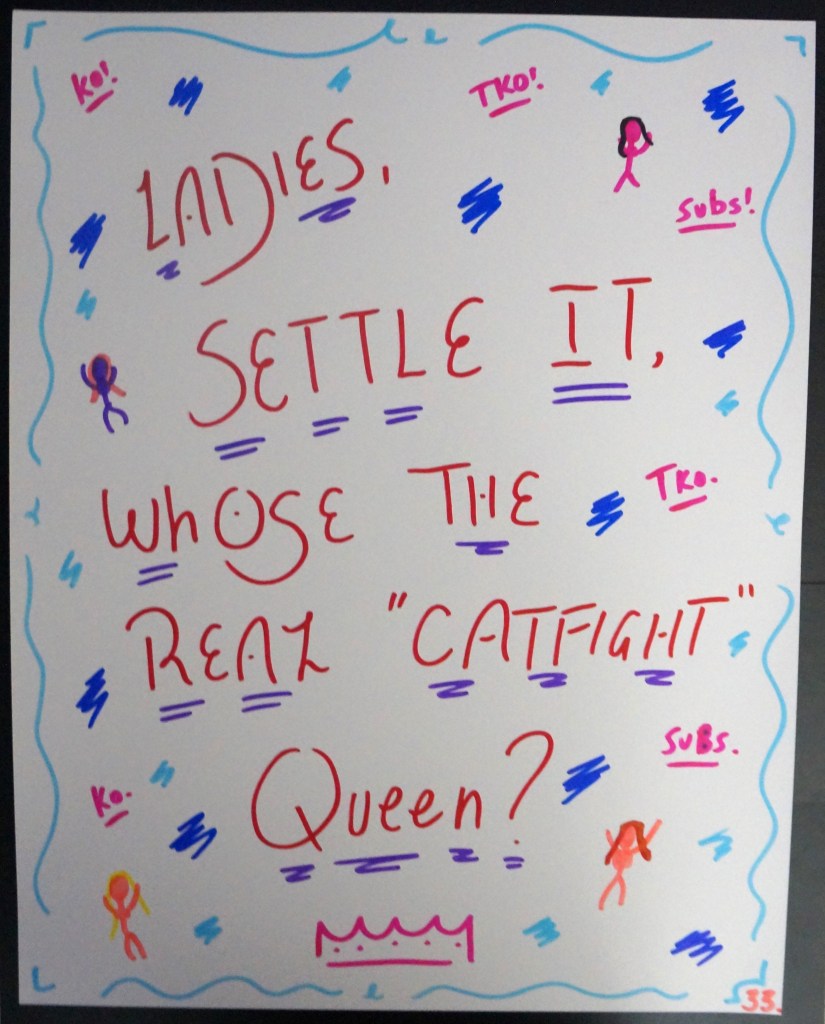 KO!
TKO!
LADIES,
Subs!
SETTLE IT,
WhOSE THE
TKO.
REAL "CATFIGHT"
SUBS.
Queen?
KO.
33.